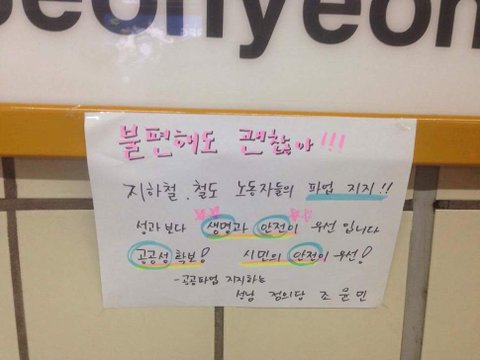 eohyeon
불편해도 괜찮아!!!
지하철.철도 노동자들의 파업 지지!!
성과보다 생명과 안전이 우선 입니다
공공성 확보! 시민의 안전이 우선!
-공공파업 지지하는
성남 정의당 조윤민